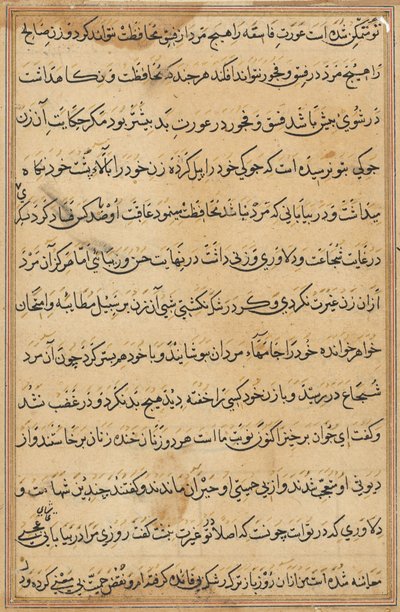 تو متمکن شده است عورت فاسقه را هیچ مرد از فسق محافظت نتواند کرد و زن صالحه
را هیچ مرد در فسق و فجور نتواند افکند هر چند که محافظت و نکاهداشت
در شوی بیش باشد فسق و فجور در عورت بد بیشتر بود مکر حکایت آن زن
جوکی بتو نرسیده است که جوکی خود را پیل کرده زن خود را بالاء پشت خود نکاه
میداشت و در بیابانی که مرد نباشد محافظت مینمود عاقبت او صد کس فساد کرد
در غایت شجاعت و دلاوری و زنی داشت در نهایت حسن و زیبائی اما هرکز آن مرد
از آن زن غیرت نکردی و کرد رشک نکشتی شبی آن زن بر سبیل مطایبه و امتحان
خواهر خوانده خود را جامهاء مردان پوشانید و با خود هم بستر کرد چون آن مرد
شجاع در رسید و با زن خود کسی را خفته دید هیچ بد نکرد و در غضب نشد
و کفت ای جوان برخیز اکنون نوبت ماست هر دو زنان خنده زنان برخاستند و از
دیوثی او متعجب شدند و از بی حمیتی او حیران ماندند و کفتند چندین شهامت و
دلاوری که در تو است چونست که اصلا تو غیرت نیست کفت روزی مرا در بیابانی
معاینه شده است من از آن روز باز ترک رشک بی فایده کرفته ام و نقض حمیت بی معنی کرده و در